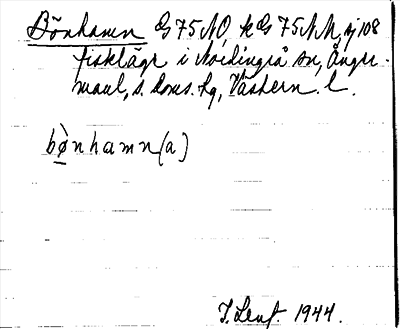 Bönhamn Gs 75 NO, k Gs 75 NM, sj 108
fiskläge i Nordingrå sn, Ånger-
manl, s. doms. hg, Västern. l.
bø̀nhamn(a)
1944.